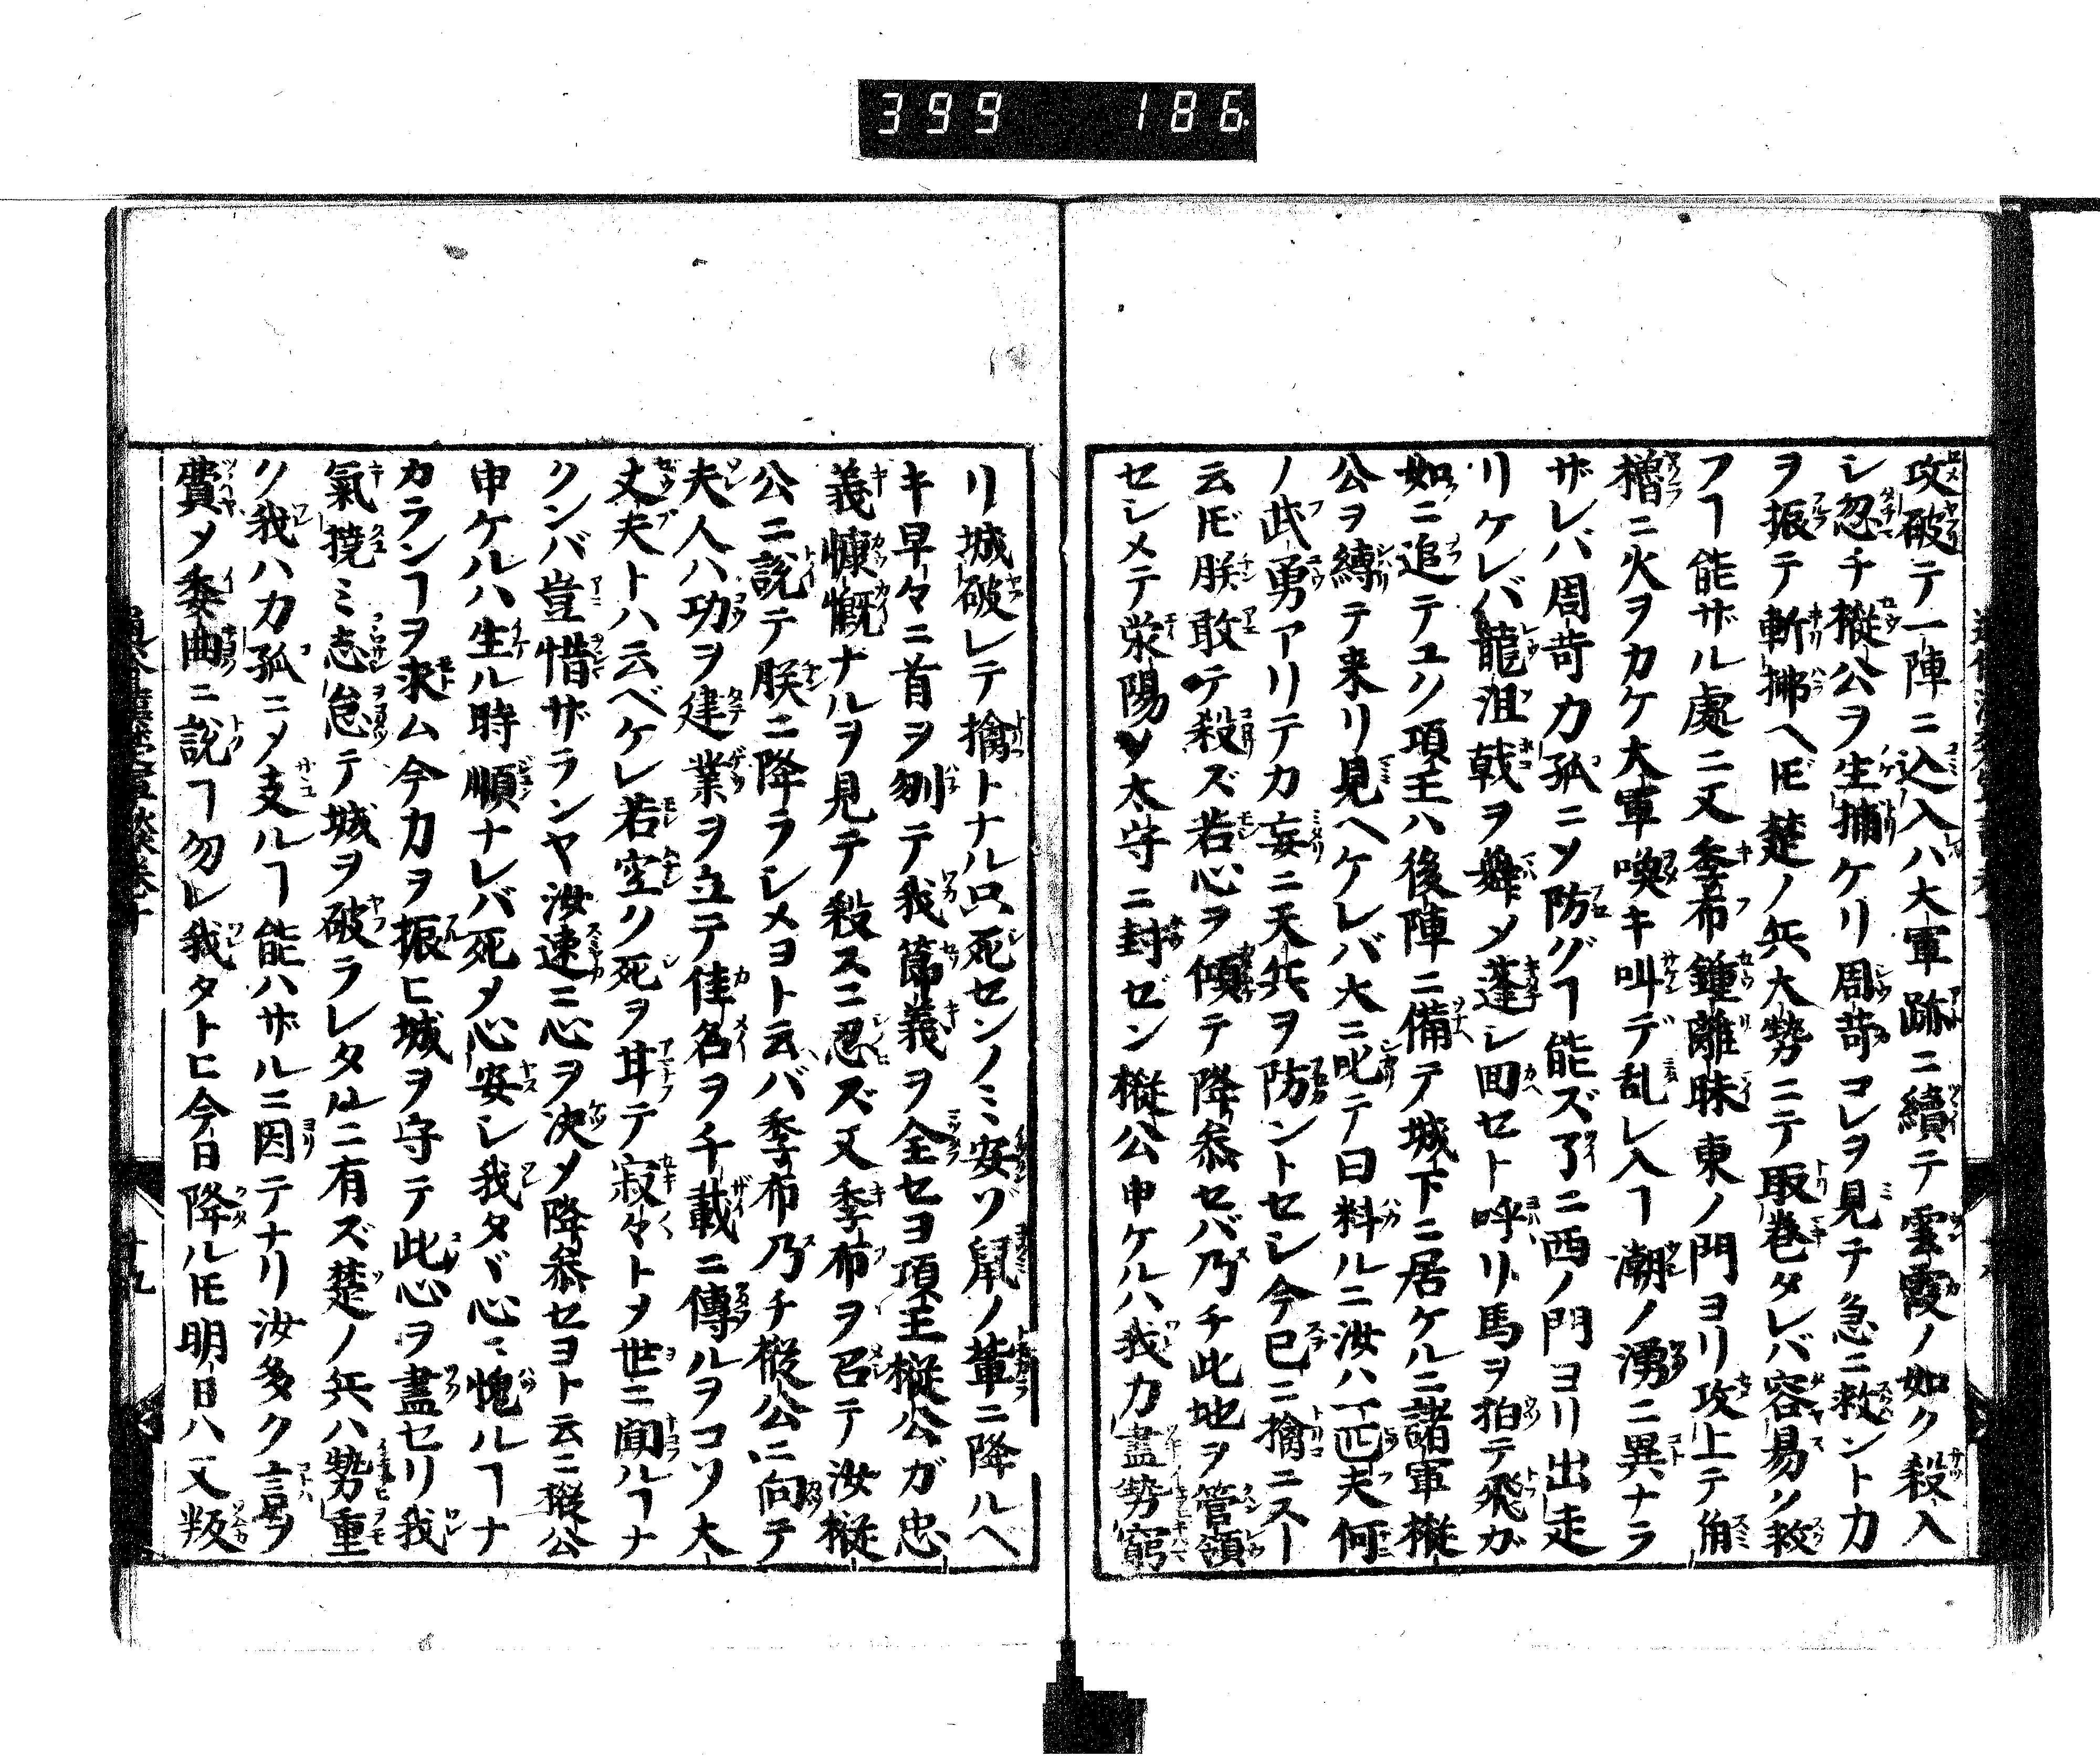 399 186
攻破テ一陣ニ込入ハ大軍跡ニ續テ雲霞ノ如ク殺入
シ忽チ樅公ヲ生捕ケリ周苛コレヲ見テ急ニ救ントカ
ヲ振テ斬拂ヘ𪜈楚ノ兵大勢ニテ取巻タレバ容易ク救
フヿ能ザル處ニ又季布鍾離昧東ノ門ヨリ攻上テ角
櫓ニ火ヲカケ大軍喚キ叫デ乱レ入ヿ潮ノ湧ニ異ナラ
ザレバ周苛力孤ニメ防グヿ能ズ了ニ西ノ門ヨリ出走
リケレバ龍沮戟ヲ舞メ蓬シ回セト呼リ馬ヲ拍テ飛ガ
如ニ追テユク項王ハ後陣ニ備テ城下ニ居ケルニ諸軍樅
公ヲ縛テ来リ見ヘケレバ大ニ叱テ曰料ルニ汝ハ一匹夫何
ノ武勇アリテカ妄ニ天兵ヲ防ントセシ今已ニ擒ニスー
云𪜈朕敢テ殺ズ若心ヲ傾テ降叅セバ乃チ此地ヲ管領
セシメテ滎陽ノ太守ニ封ゼン樅公申ケルハ我力盡勢窮
リ城破レテ擒トナル只死センノミ安ゾ鼠ノ輩ニ降ルベ
キ早々ニ首ヲ刎テ我節義ヲ全セヨ項王樅公ガ忠
義慷慨ナルヲ見テ殺スニ忍ズ又季布ヲ召テ汝樅
公ニ説テ朕ニ降ラシメヨト云バ季布乃チ樅公ニ向テ
夫人ハ功ヲ建業ヲ立テ佳名ヲ千載ニ傳ルヲコソ大
丈夫トハ云ベケレ若空ク死ヲ耳テ寂々トメ世ニ聞ルヿナ
クンバ豈惜ザランヤ汝速ニ心ヲ決メ降叅セヨト云ニ樅公
申ケルハ生ル時順ナレバ死メ心安シ我タヾ心ニ愧ルヿナ
カランヿヲ求ム今力ヲ振ヒ城ヲ守テ此心ヲ盡セリ我
氣撓ミ志怠テ城ヲ破ラレタルニ有ズ楚ノ兵ハ勢重
ク我ハ力孤ニメ支ルヿ能ハザルニ因テナリ汝多ク言ヲ
費メ委曲ニ説ヿ勿レ我タトヒ今日降ル𪜈明日ハ又叛
十九